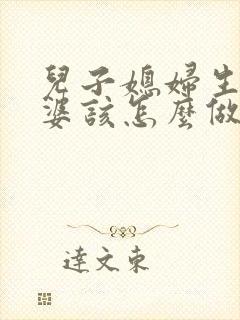 兒子媳婦生
婆該怎麼做
達文東